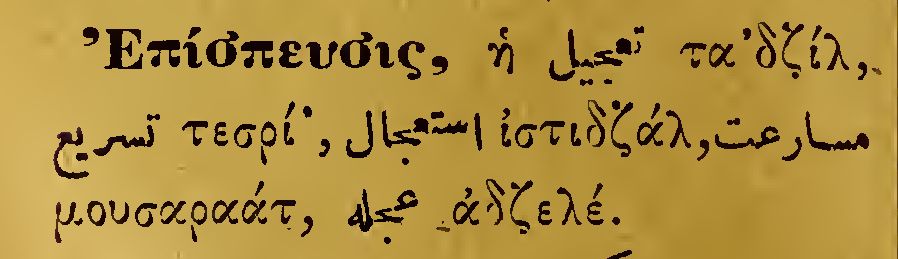 Ἐπίσπευσις, ἡ تعجيل τα'δζίλ,
تسريع τεσρί', استعجال ἰστιδζάλ, مسارعت
μουσαραάτ, عجله ἀδζελέ.